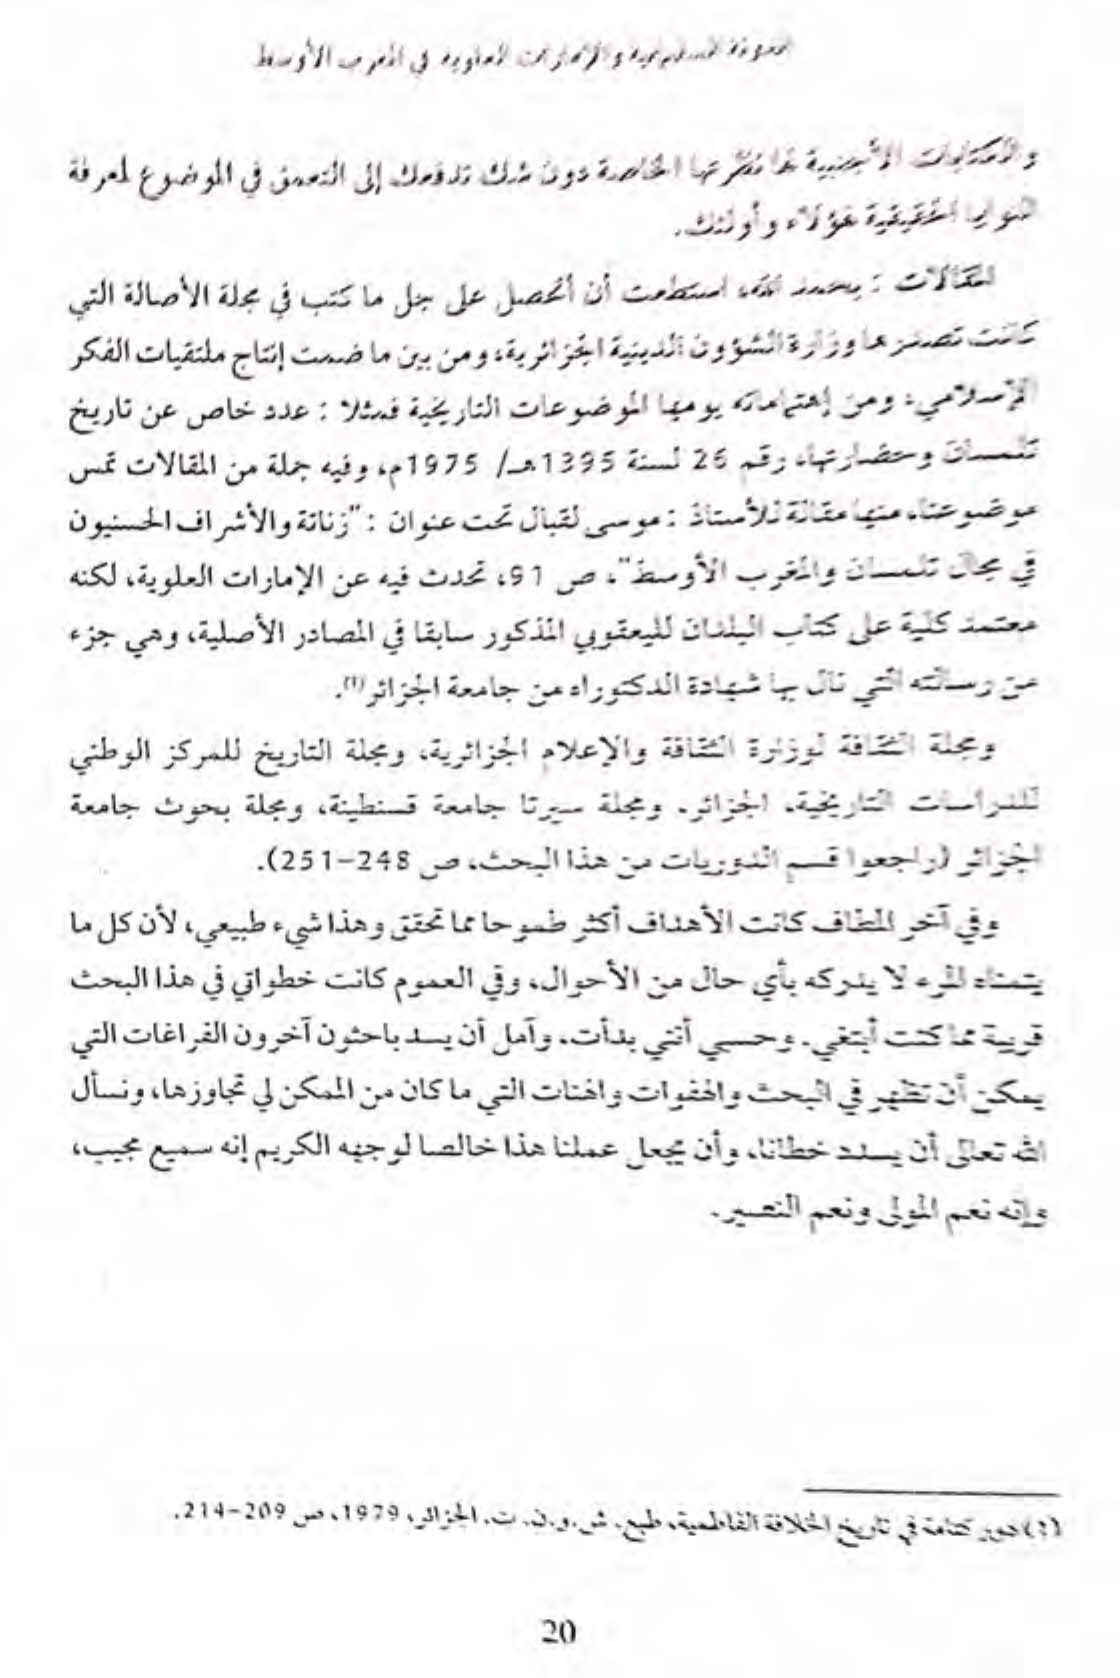 الدولة السليمانية والإمارات العلوية في المغرب الأوسط
والكتابات الأجنبية لها نظرتها الخاصة دون شك تدفعك إلى التعمق في الموضوع لمعرفة
النوايا الحقيقية لهؤلاء وأولئك.
المقالات : بحمد الله، استطعت أن أتحصل على جل ما كتب في مجلة الأصالة التي
كانت تصدرها وزارة الشؤون الدينية الجزائرية، ومن بين ما ضمت إنتاج ملتقيات الفكر
الإسلامي، ومن إهتماماته يومها الموضوعات التاريخية فمثلا : عدد خاص عن تاريخ
تلمسان وحضارتها، رقم 26 لسنة 1395هـ/ 1975م، وفيه جملة من المقالات تمس
موضوعنا، منها مقالة للأستاذ : موسى لقبال تحت عنوان : "زناتة والأشراف الحسنيون
في مجال تلمسان والمغرب الأوسط"، ص 91، تحدث فيه عن الإمارات العلوية، لكنه
معتمد كلية على كتاب البلدان لليعقوبي المذكور سابقا في المصادر الأصلية، وهي جزء
من رسالته التي نال بها شهادة الدكتوراه من جامعة الجزائر(1).
ومجلة الثقافة لوزارة الثقافة والإعلام الجزائرية، ومجلة التاريخ للمركز الوطني
للدراسات التاريخية، الجزائر. ومجلة سيرتا جامعة قسنطينة، ومجلة بحوث جامعة
الجزائر (راجعوا قسم الدوريات من هذا البحث، ص 248-251).
وفي آخر المطاف كانت الأهداف أكثر طموحا مما تحقق وهذا شيء طبيعي، لأن كل ما
يتمناه المرء لا يدركه بأي حال من الأحوال، وفي العموم كانت خطواتي في هذا البحث
قريبة مما كنت أبتغي. وحسبي أنني بدأت، وآمل أن يسد باحثون آخرون الفراغات التي
يمكن أن تظهر في البحث والهفوات والهنات التي ما كان من الممكن لي تجاوزها، ونسأل
الله تعالى أن يسدد خطانا، وأن يجعل عملنا هذا خالصا لوجهه الكريم إنه سميع مجيب،
وإنه نعم المولى ونعم النصير.
(1) دور كتامة في تاريخ الخلافة الفاطمية، طبع. ش.و.ن. ت. الجزائر، 1979، ص 209-214.
20